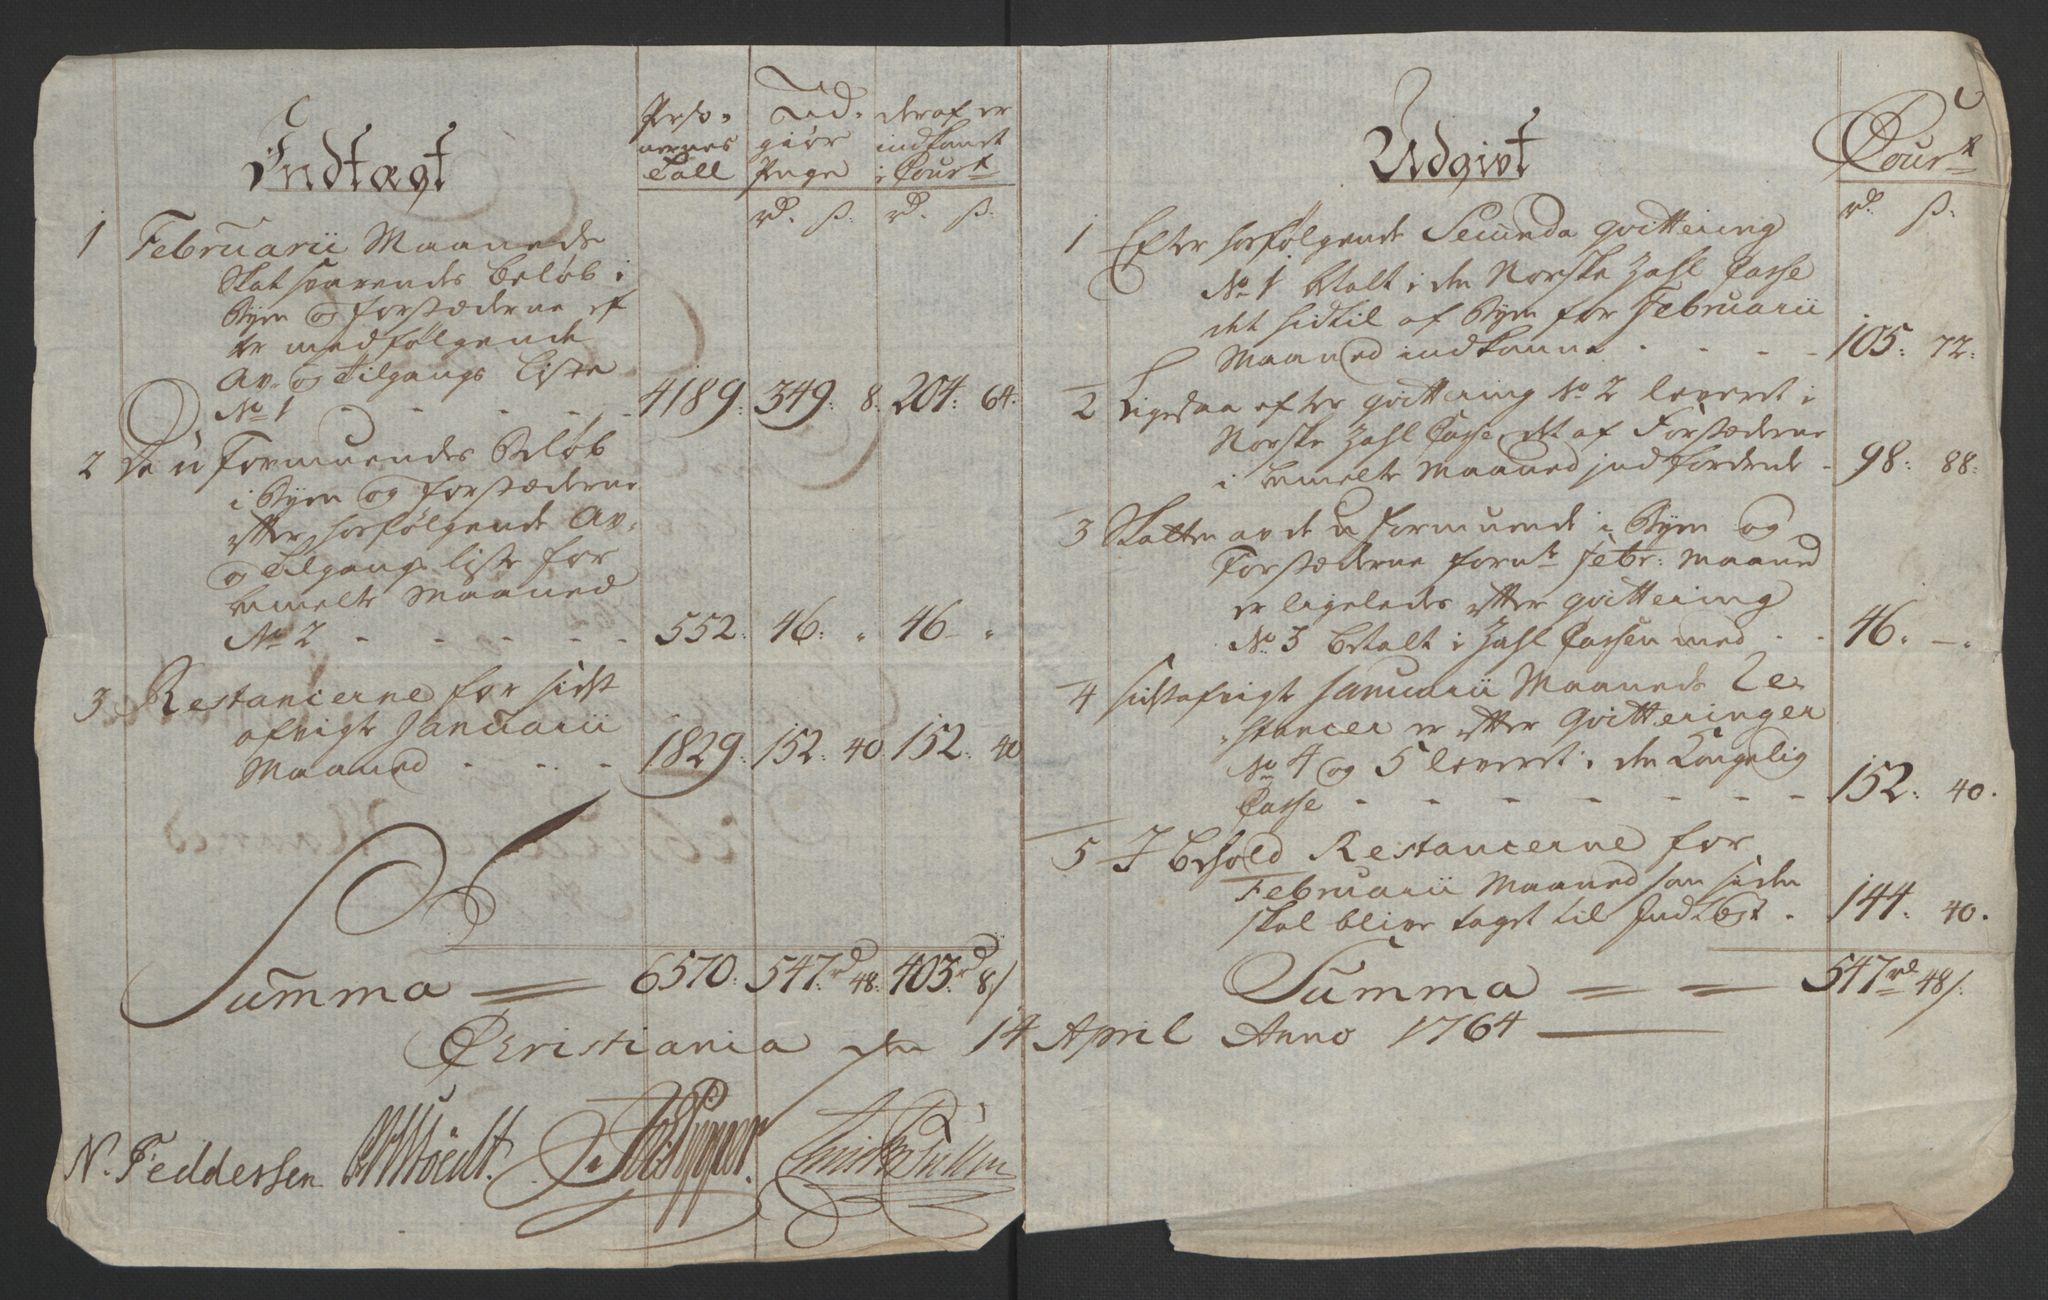 Indtægt
Perso-
nernes
Tall
Ud-
giør
Penge
deraf er
indkomet
i Courᵗ
rd. ß. rd. ß.
1 Februarii Maaneds
Skatsvarendes beløb i
Byen og Forstæderne ef
ter medfølgende
Av- og Tilgangs Liste
No 1 - - - - 4189: 349: 8. 204: 64.
2 De uformuendes Beløb
i Byen og Forstæderne
efter hosfølgende Av-
og Tilgangs liste for
bemelte Maaned
No 2 - - - - - 552: 46: " 46 - "
3 Restancerne for sidst
afvigte Januarii
Maaned - - - 1829: 152: 40. 152: 40
Summa = 6570: 547. rd 48: 403. rd 8 ß
Udgivt
Courᵗ
rd. ß.
1 Efter hosfølgende Secunda qvittering
No 1 betalt i den Norske Zahl Casse
det hidtil af Byen for Februarii
Maaned indkomne - - - - 105: 72:
2 Ligesaa efter qvittering No 2 leveret i
Norske Zahl Casse, det af Forstæderne
i bemelte Maaned indfordrede - 98: 88:
3 Skatten av de uformuende i Byen og
Forstæderne forⁿᵗᵉ Febr: Maaned
er ligeledes efter qvittering
No 3 betalt i Zahl Cassen med - - 46. - .
4 Sidstafvigte Januarii Maaneds Re-
stancer er efter Qvitteringer
No 4 og 5 leveret i den Kongelig
Casse - - - - - - - 152: 40.
5 I behold Restancerne for
Februarii Maaned som siden
skal blive taget til Indtægt - 144: 40.
Summa = = 547 rd 48 ß.
Christiania den 14 April Anno 1764
N. Feddersen